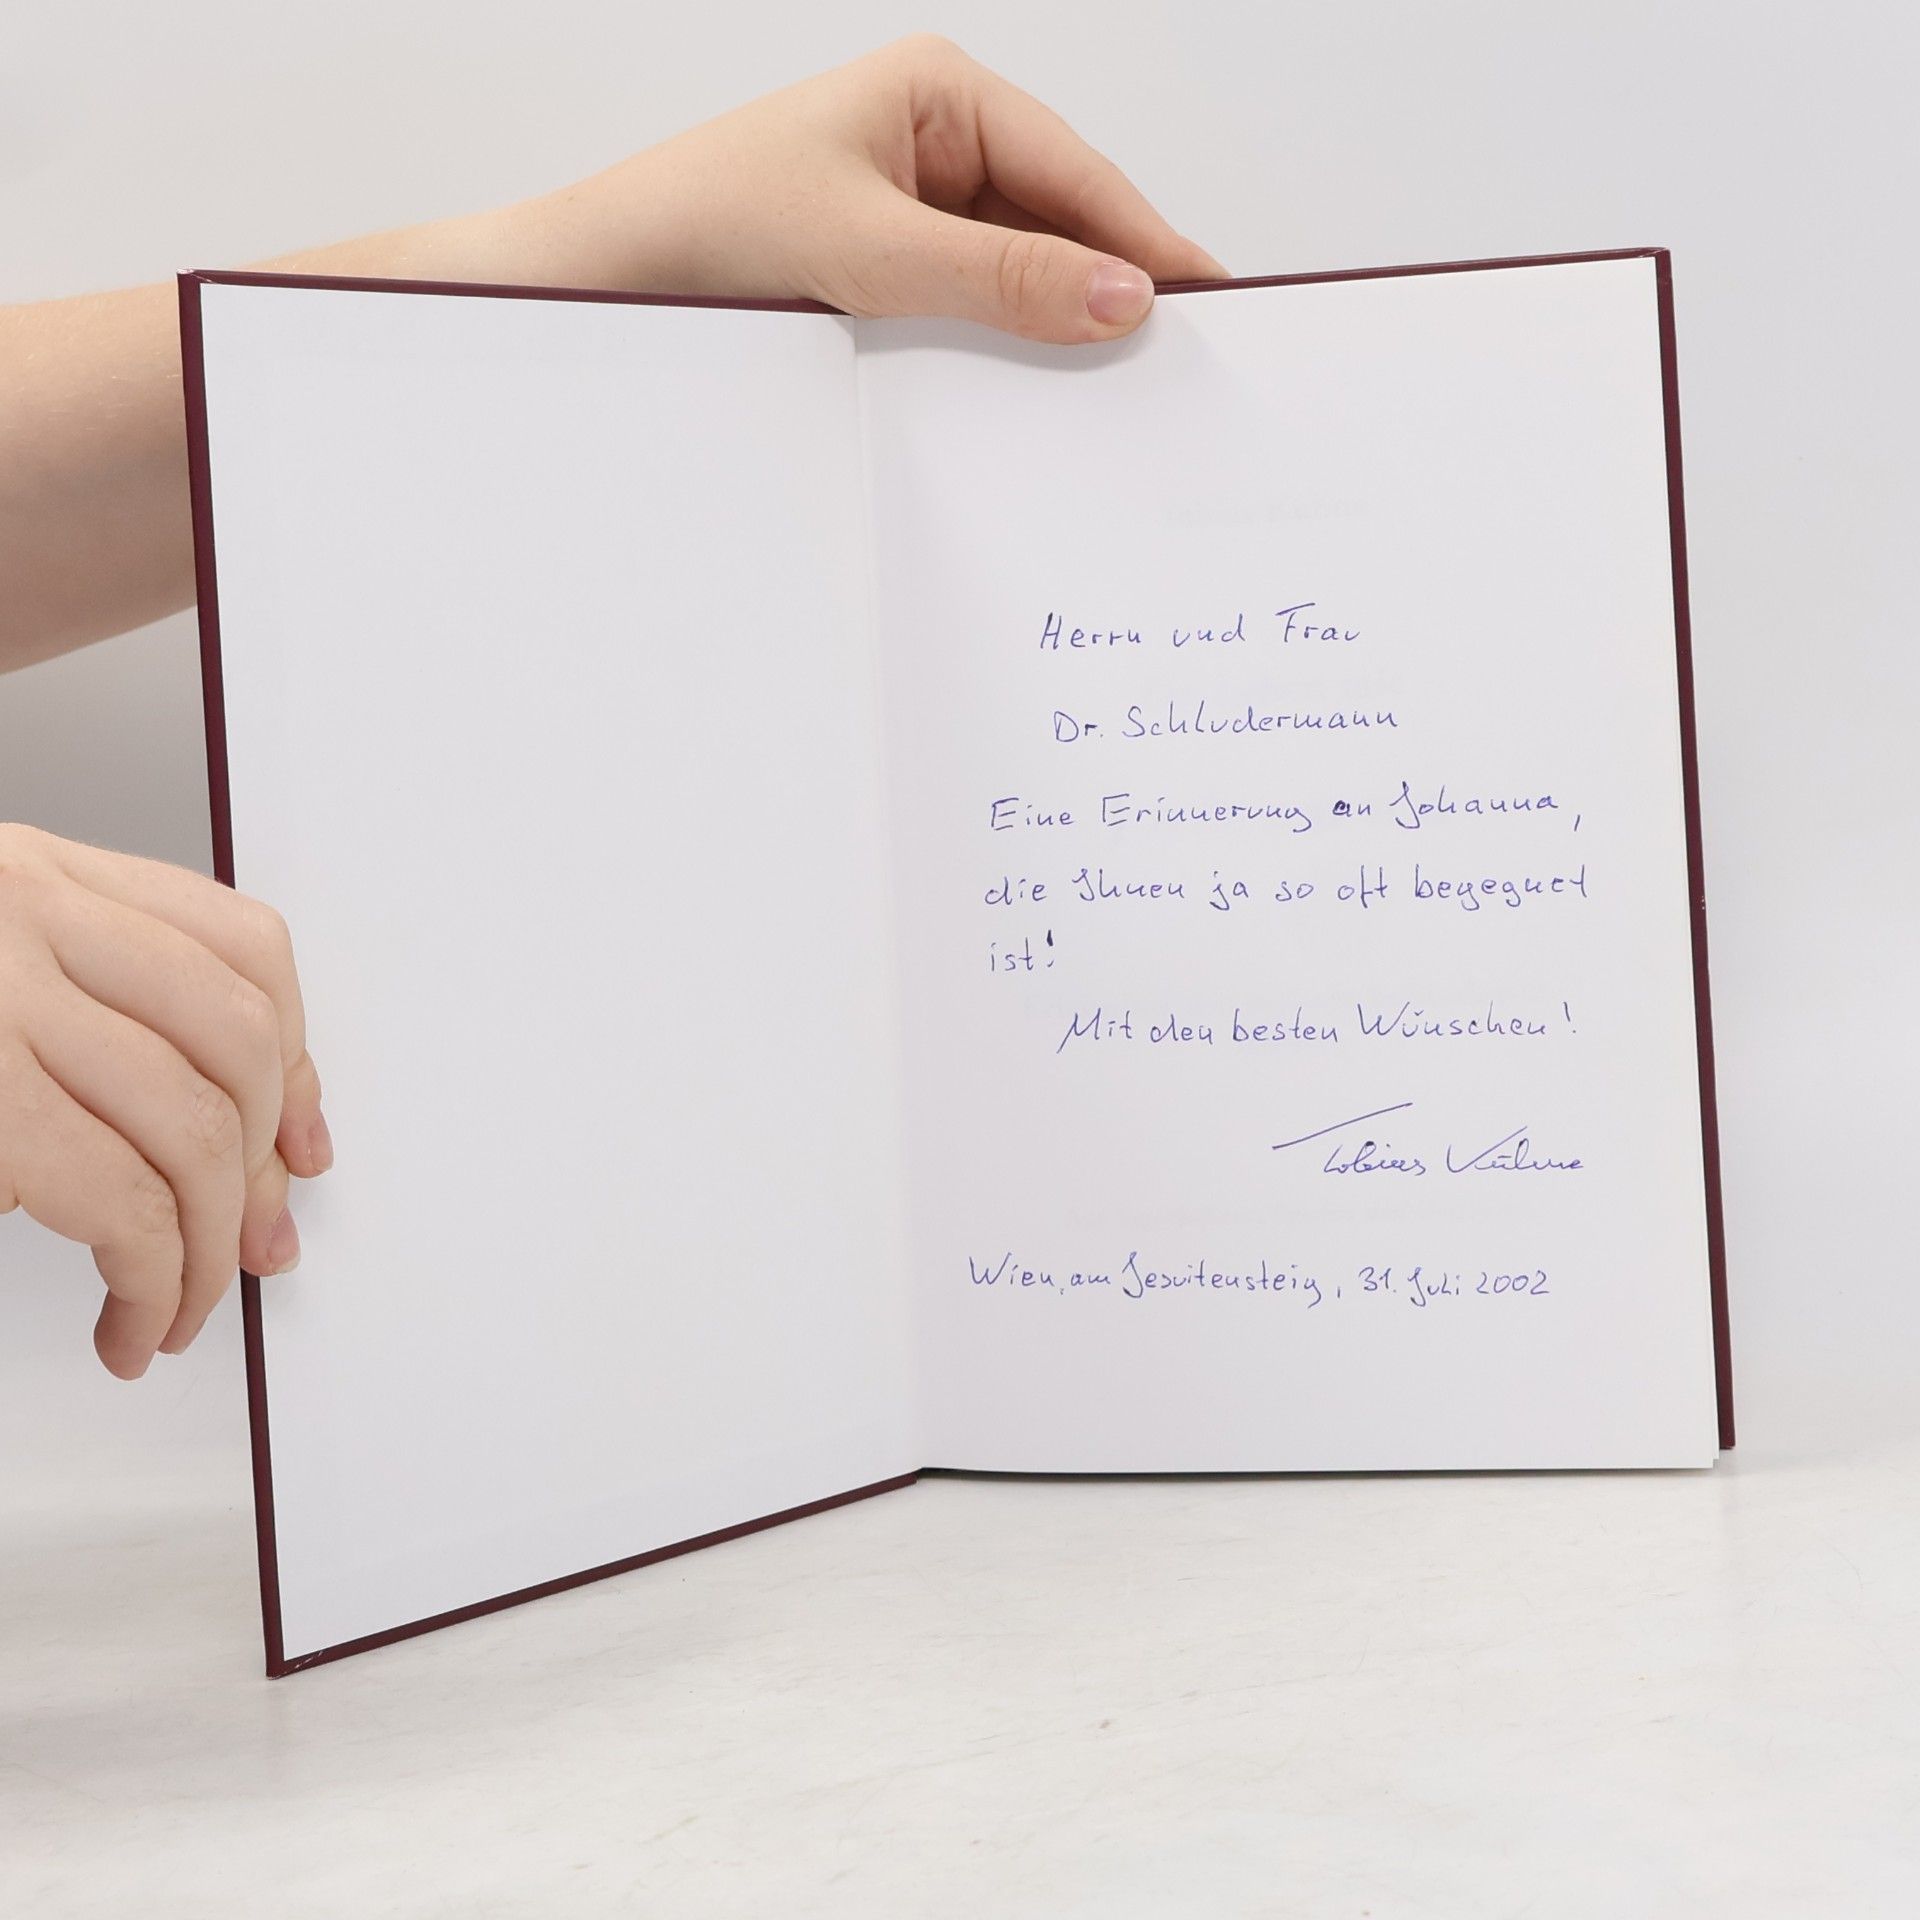 Herrn und Frau
Dr. Schludermann
Eine Erinnerung an Johanna,
die Ihnen ja so oft begegnet
ist!
Mit den besten Wünschen!
Tobias Kühne
Wien, am Jesuitensteig, 31. Juli 2002